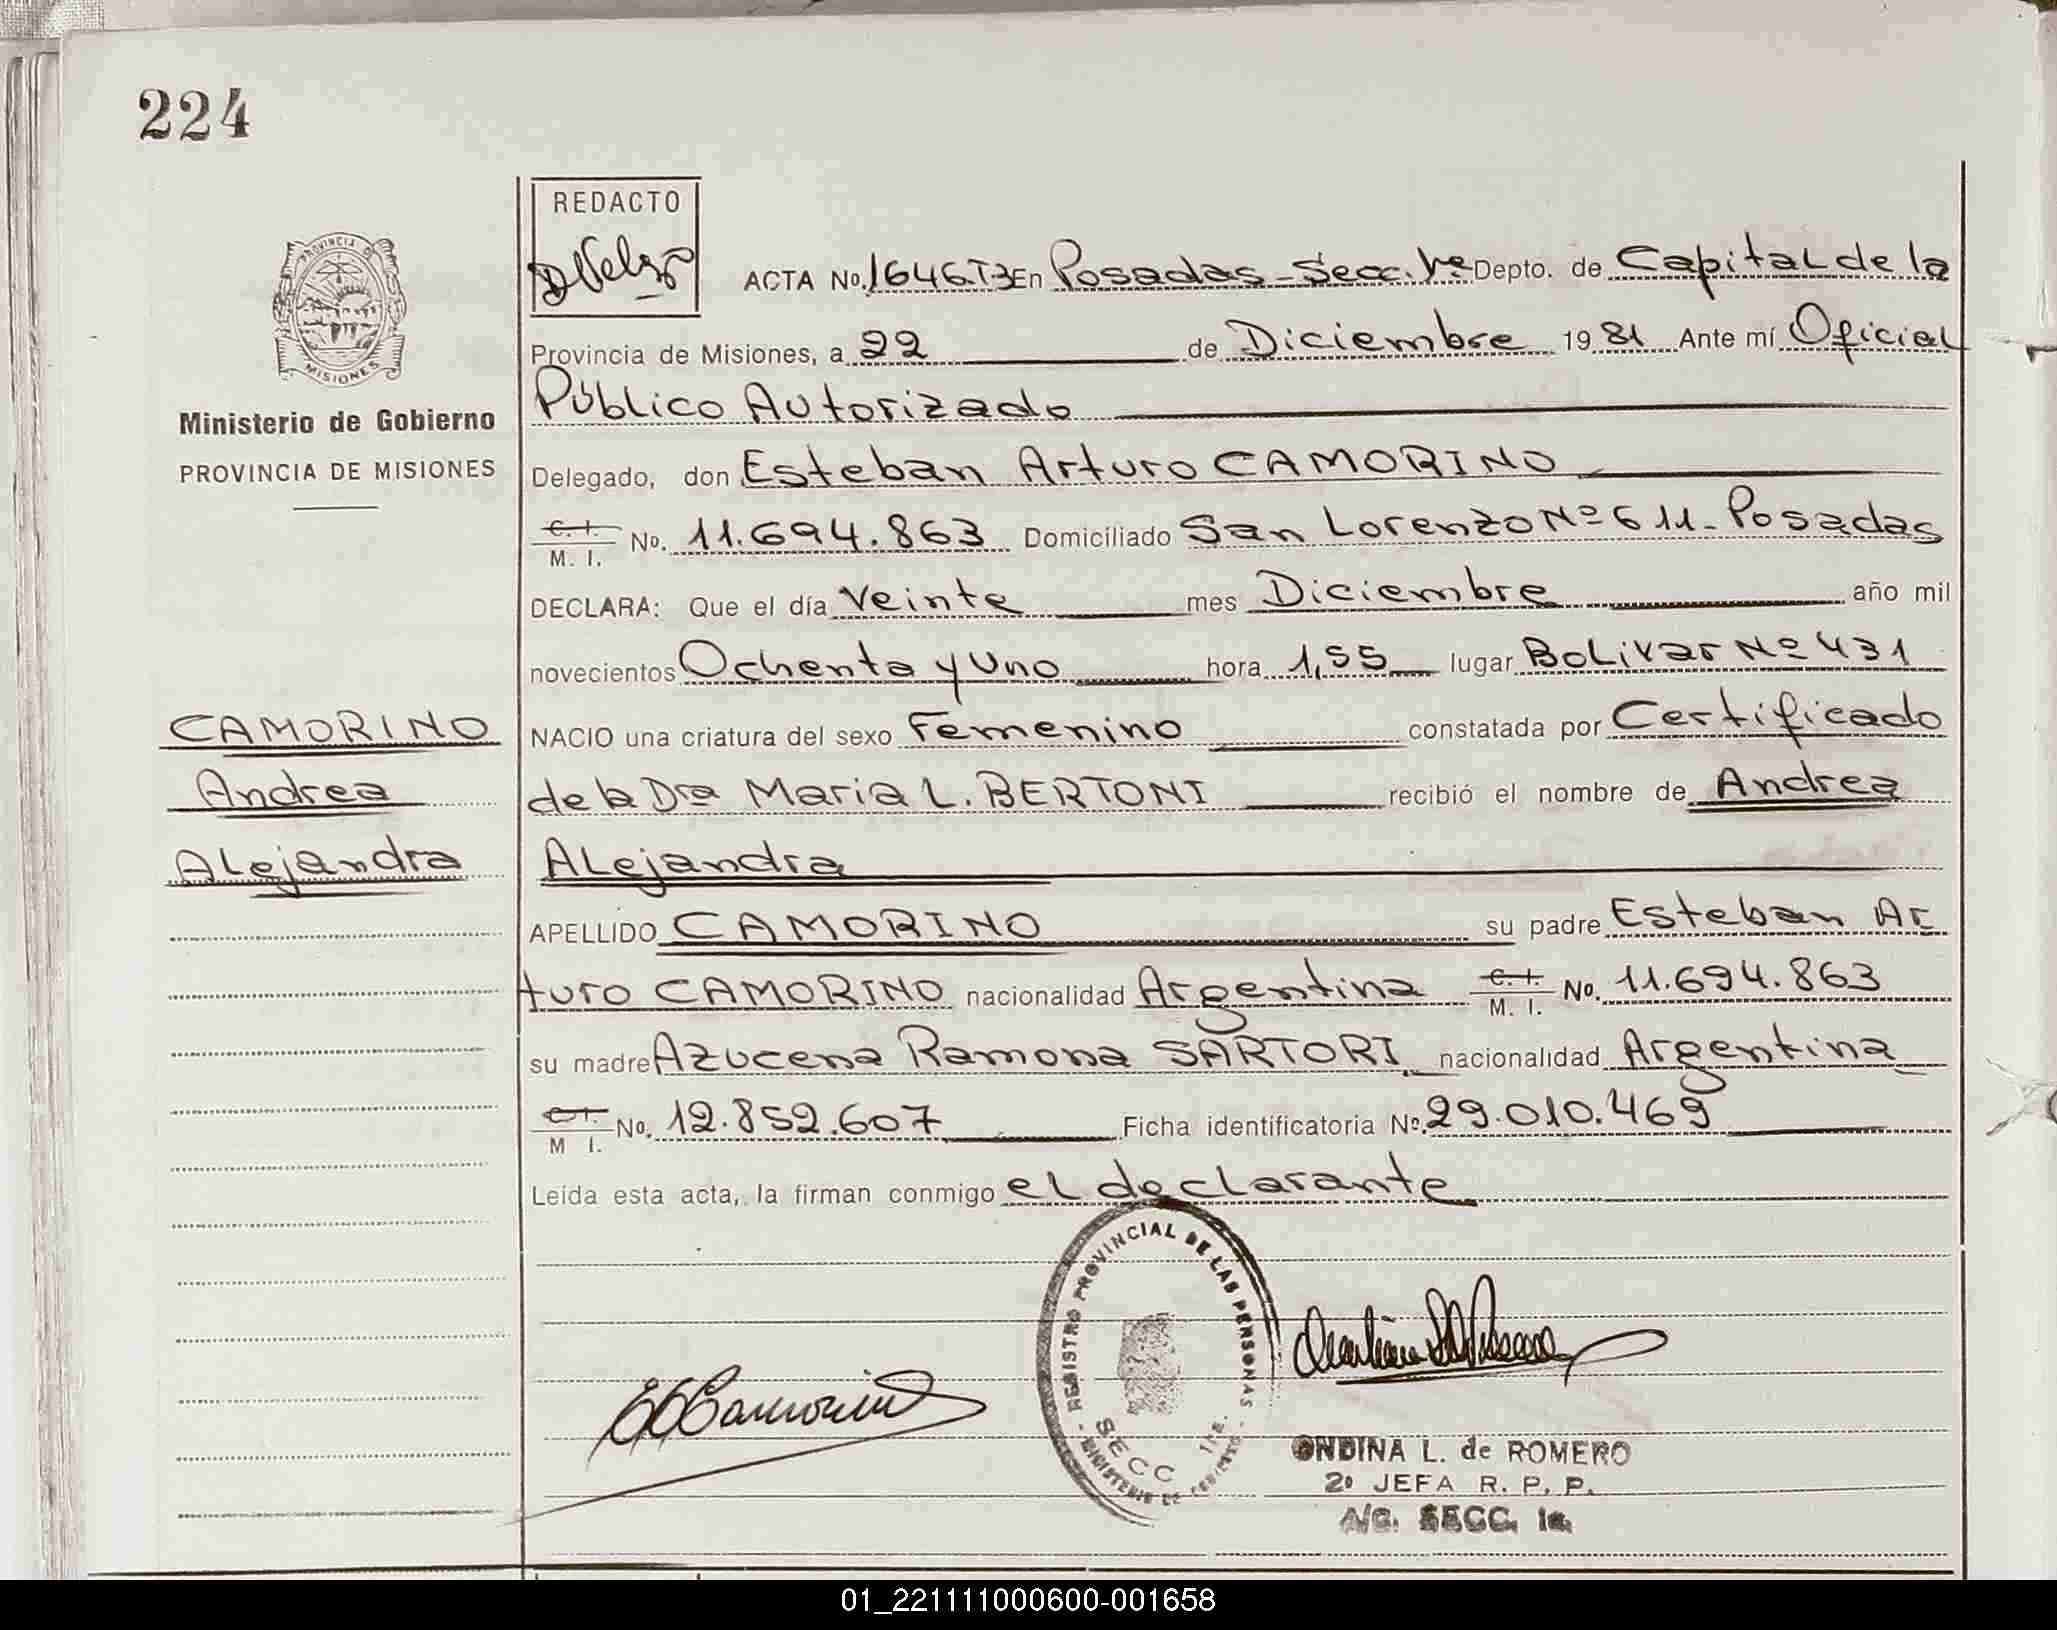 224
PROVINCIA DE
MISIONES
Ministerio de Gobierno
PROVINCIA DE MISIONES
CAMORINO
Andrea
Alejandra
REDACTO
ACTA No. 1646.T3 En Posadas - Secc. 1ª Depto. de Capital de la
Provincia de Misiones, a 22 de Diciembre 1981 Ante mí Oficial
Público Autorizado
Delegado, don Esteban Arturo CAMORINO
C. I.
M. I. No. 11.694.863 Domiciliado San Lorenzo Nº 611 - Posadas
DECLARA: Que el día Veinte mes Diciembre año mil
novecientos Ochenta y Uno hora 1,55 lugar Bolivar Nº 431
NACIO una criatura del sexo Femenino constatada por Certificado
de la Dra Maria L. BERTONI recibió el nombre de Andrea
Alejandra
APELLIDO CAMORINO su padre Esteban Ar
turo CAMORINO nacionalidad Argentina C. I. M. I. No. 11.694.863
su madre Azucena Ramona SARTORI nacionalidad Argentina
C. I.
M I. No. 12.852.607 Ficha identificatoria No. 29.010.469
Leída esta acta, la firman conmigo el declarante
REGISTRO PROVINCIAL DE LAS PERSONAS
SECC
ONDINA L. de ROMERO
2º JEFA R. P. P.
A/C. SECC. 1a.
01_221111000600-001658